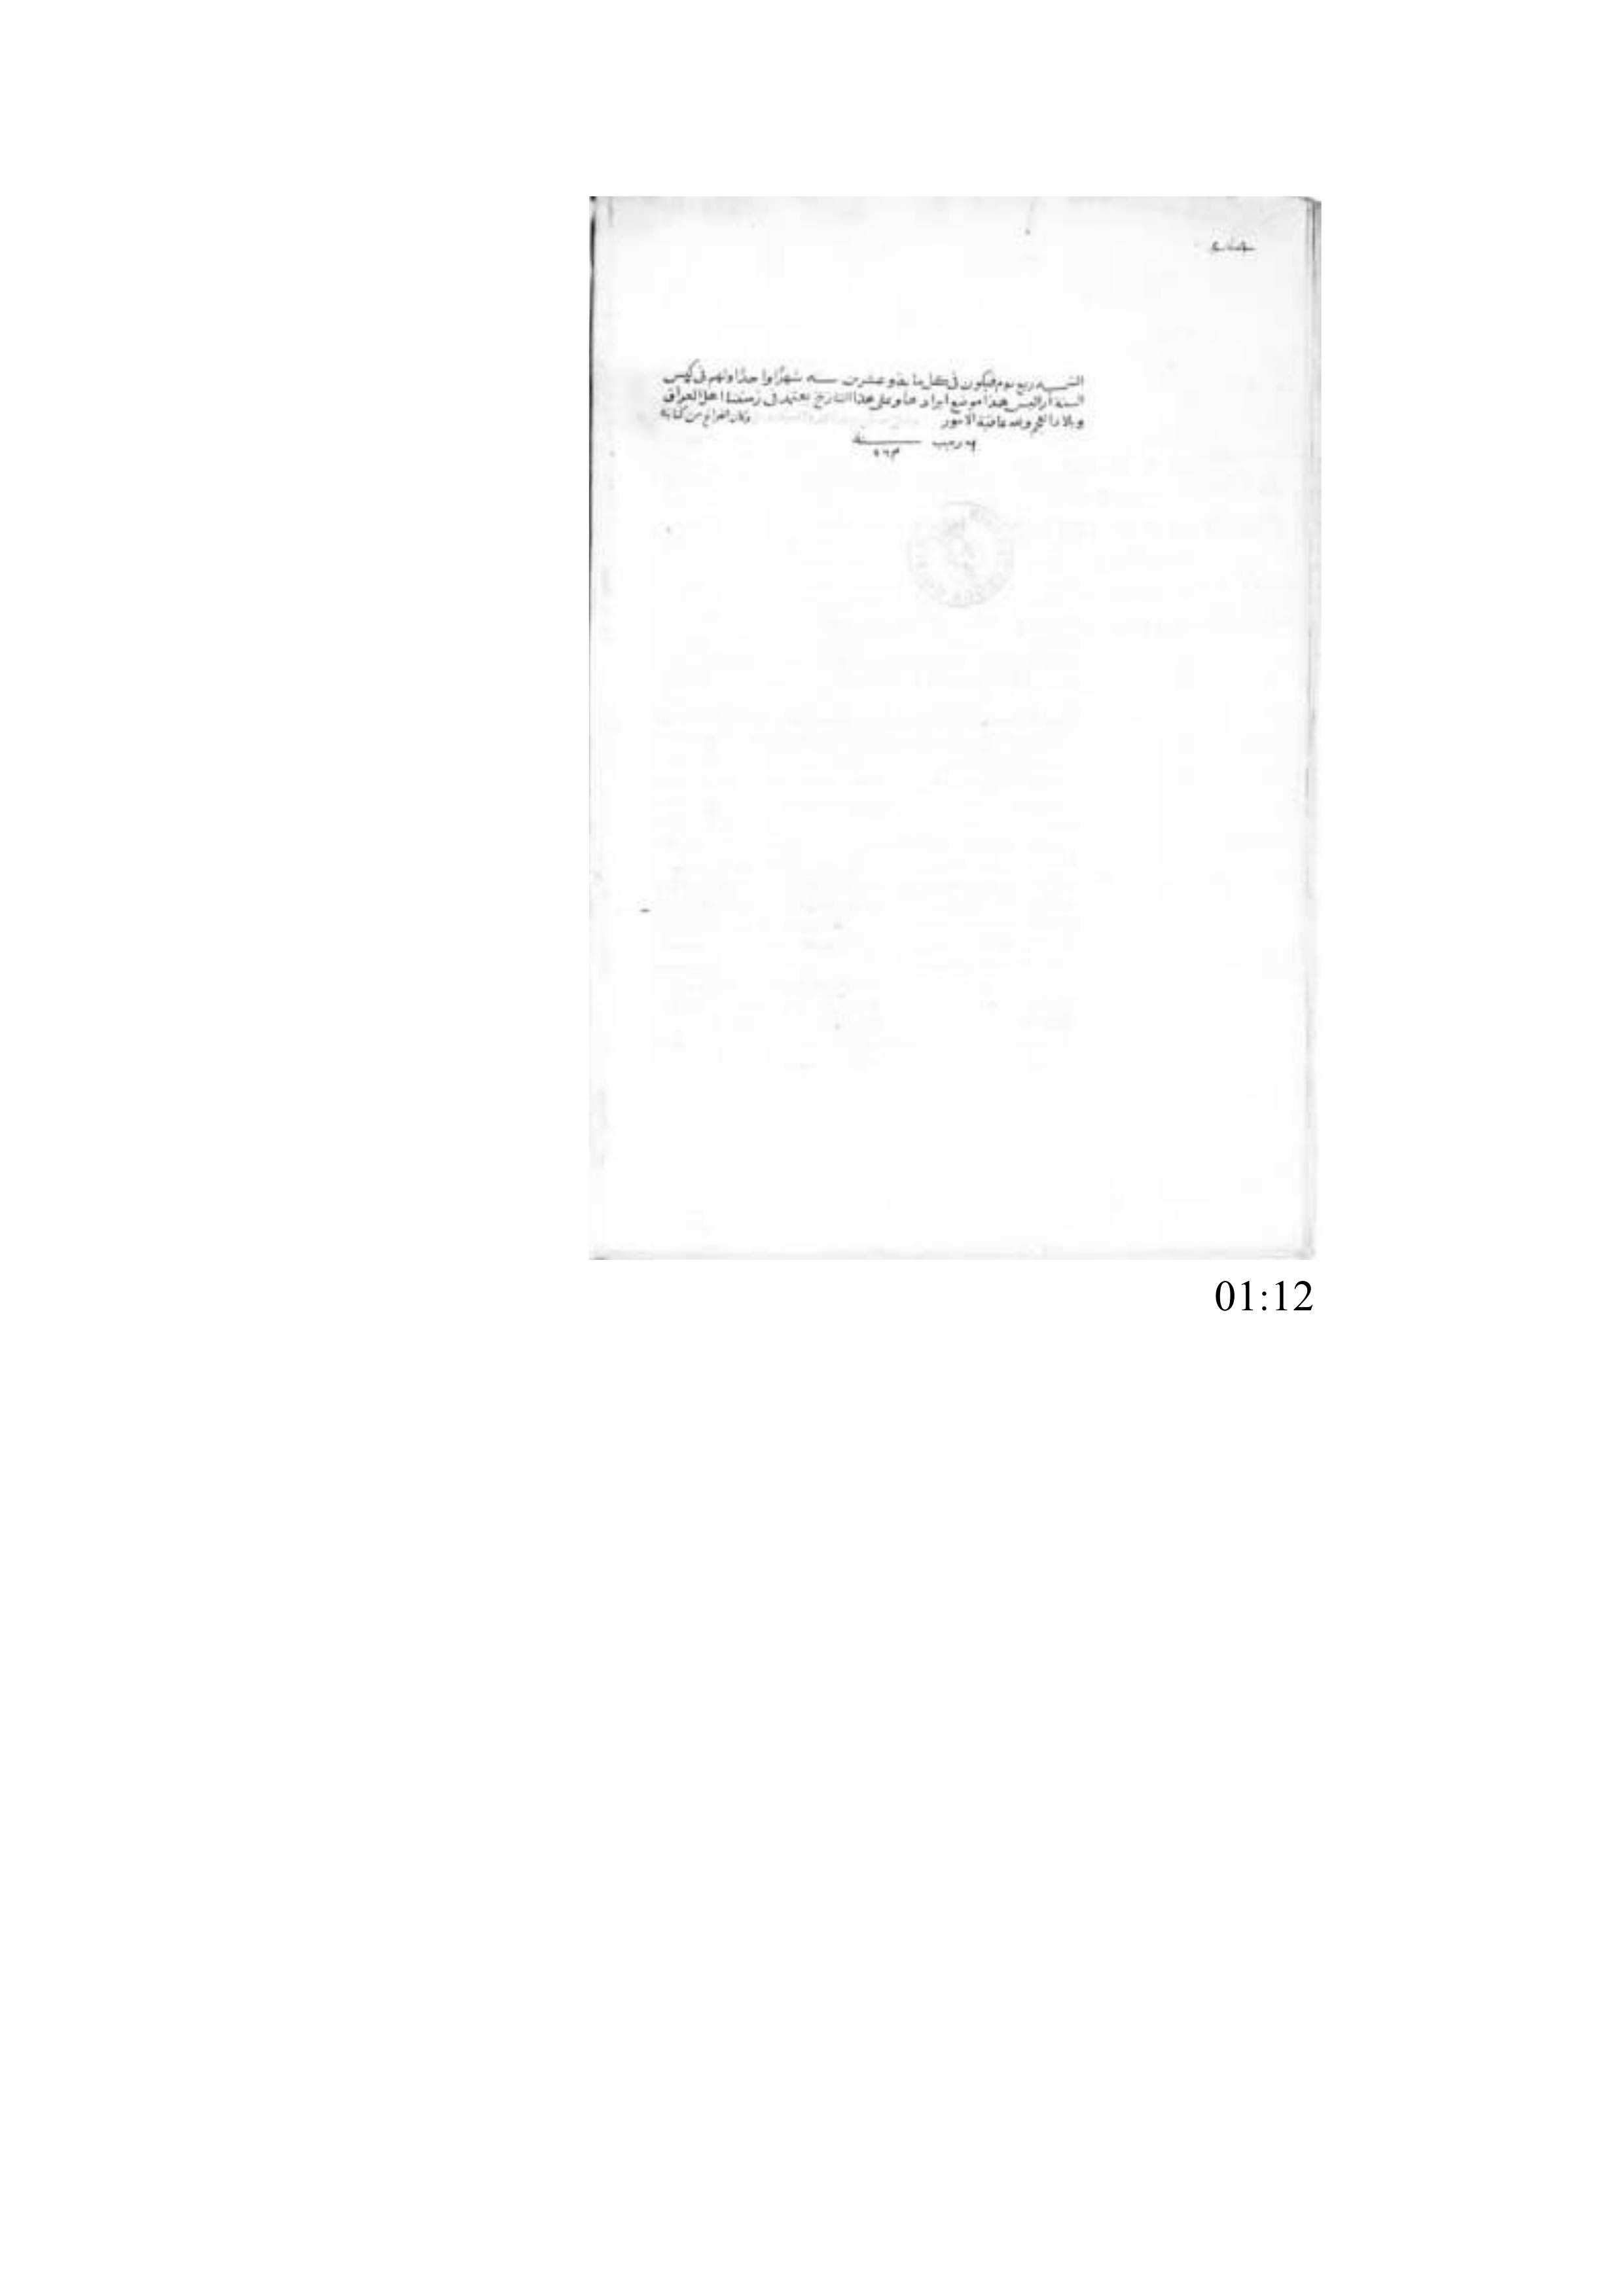 السنة ربع يوم فيكون في كل مائة وعشرين سنة شهرا واحدا ولهم في كبس
السنة آراء ليس هذا موضع ايرادها وعلى هذا التاريخ يعتمد في زمننا اهل العراق
وبلاد العجم ولله عاقبة الامور وكان الفراغ من كتابة
رجب سنة
٩٦٣
01:12